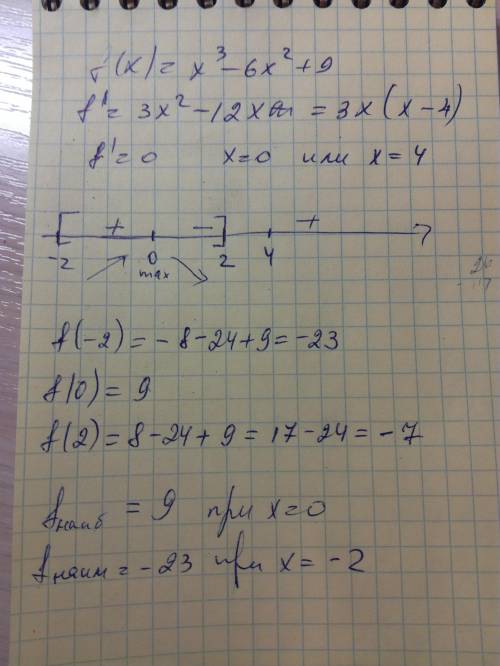 f(x) = x³ - 6x² + 9
f' = 3x² - 12x = 3x(x - 4)
f' = 0 x=0 или x = 4
+ - +
-2 0 2 4
max
f(-2) = - 8 - 24 + 9 = -23
f(0) = 9
f(2) = 8 - 24 + 9 = 17 - 24 = - 7
fнаиб = 9 при x=0
fнаим = -23 при x = -2